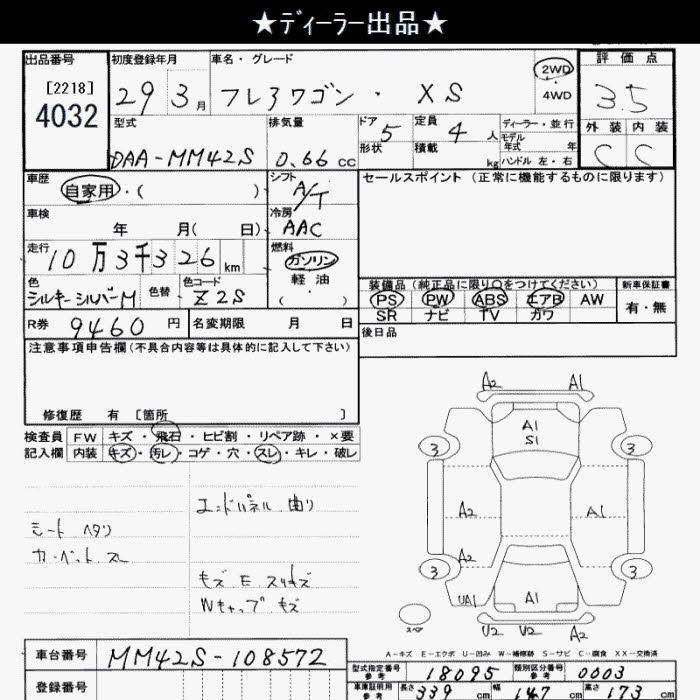 ★ディーラー出品★
出品番号
[2218]
4032
初度登録年月
29 3月
車名・グレード
フレアワゴン・ XS
2WD
4WD
評価点
3.5
型式
DAA-MM42S
排気量
0.66 cc
ドア
5
形状
定員
4 人
積載
kg
ディーラー・並行
モデル
年式 年
ハンドル 左・右
外装 内装
C C
車歴
自家用・( )
シフト
A/T
セールスポイント (正常に機能するものに限ります)
車検
年 月( 日)
冷房
AAC
走行
10万3千326km
燃料
ガソリン
・
軽油
( )
色
シルキーシルバーM
色替
色コード
Z2S
装備品 (純正品に限り○をつけてください)
PS PW ABS エアB AW
SR ナビ TV カワ
新車保証書
有・無
R券 9460円
名変期限 月 日
後日品
注意事項申告欄(不具合内容等は具体的に記入して下さい)
修復歴 有 [箇所 ]
検査員
記入欄
FW キズ・飛石・ヒビ割・リペア跡・×要
内装 キズ・汚レ・コゲ・穴・スレ・キレ・破レ
エンドパネル 曲り
シート ヘタリ
カーペット スレ
モズ E スリキズ
Wキャップ キズ
A2 A1
A1
S1
3 3
A2 A1
A2
3 3
UA1 A1
スペア
U2 V2 A2
A-キズ E-エクボ U-凹み W-補修跡 S-サビ C-腐食 XX-交換済
車台番号 MM42S-108572
登録番号
型式指定番号
参考
18095
類別区分番号
参考
0003
車庫証明用
参考
長さ 339 cm 幅 147 cm 高さ 173 cm